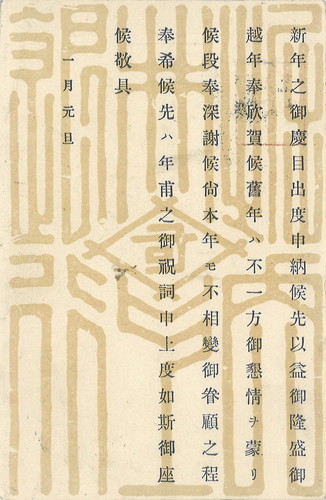 新年之御慶目出度申納候先以益御隆盛御
越年奉欣賀候舊年ハ不一方御懇情ヲ蒙リ
候段奉深謝候尙本年モ不相變御眷顧之程
奉希候先ハ年甫之御祝詞申上度如斯御座
候敬具
一月元旦